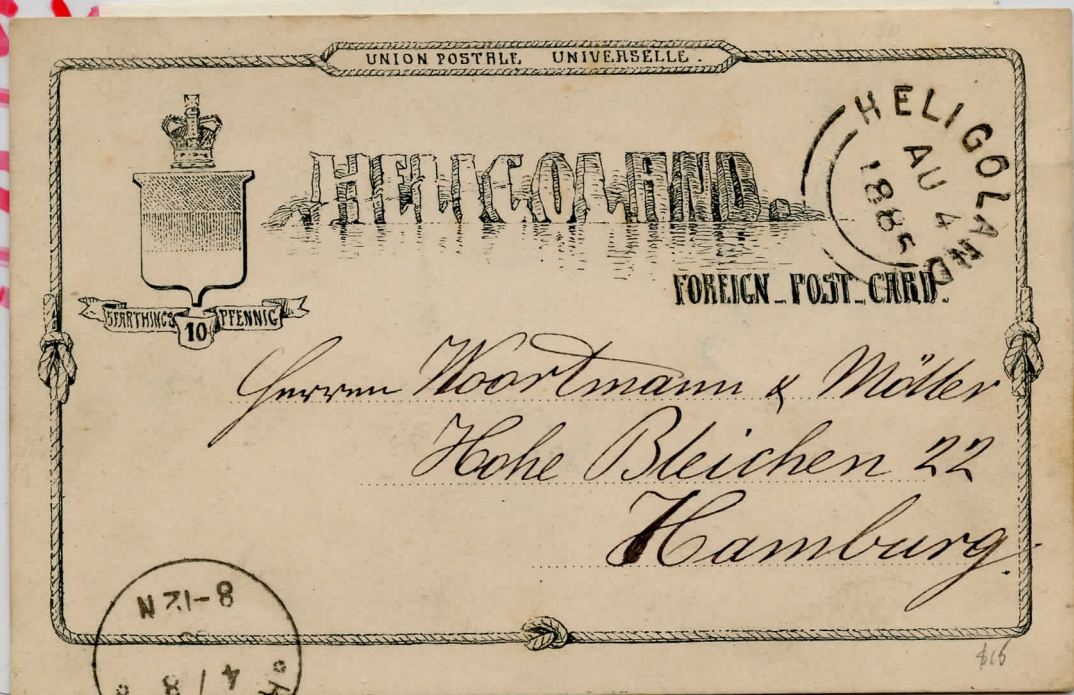 UNION POSTALE UNIVERSELLE.
HELIGOLAND
HELIGOLAND
AU 4
1885
FOREIGN POST CARD.
5 FARTHINGS 10 PFENNIG
Herren Woortmann & Möller
Hohe Bleichen 22
Hamburg.
8-12 N
4/8
$15